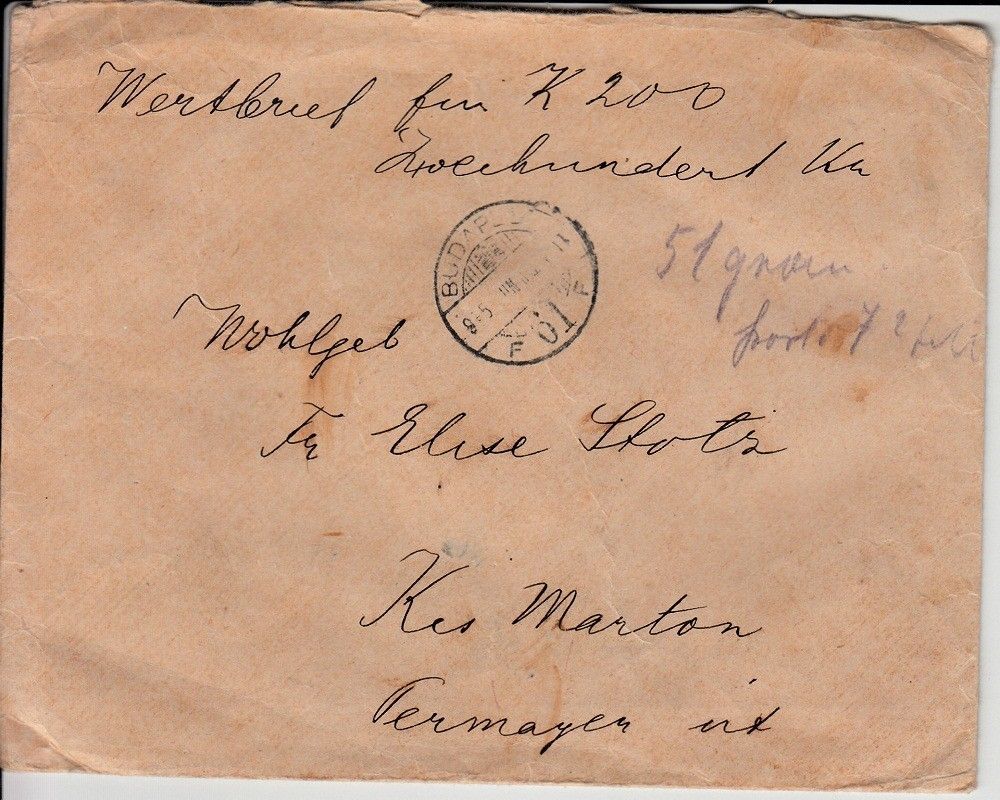 Wertbrief für K 200
Zweihundert Kr
BUDAPEST
61
F
F
51 gram
porto 72 fill
Wohlgeb
Fr Elise Stotz
Kis Marton
Permayer út